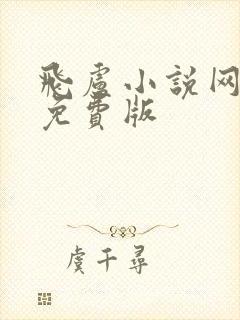 飛盧小説网
免費版
虞千尋